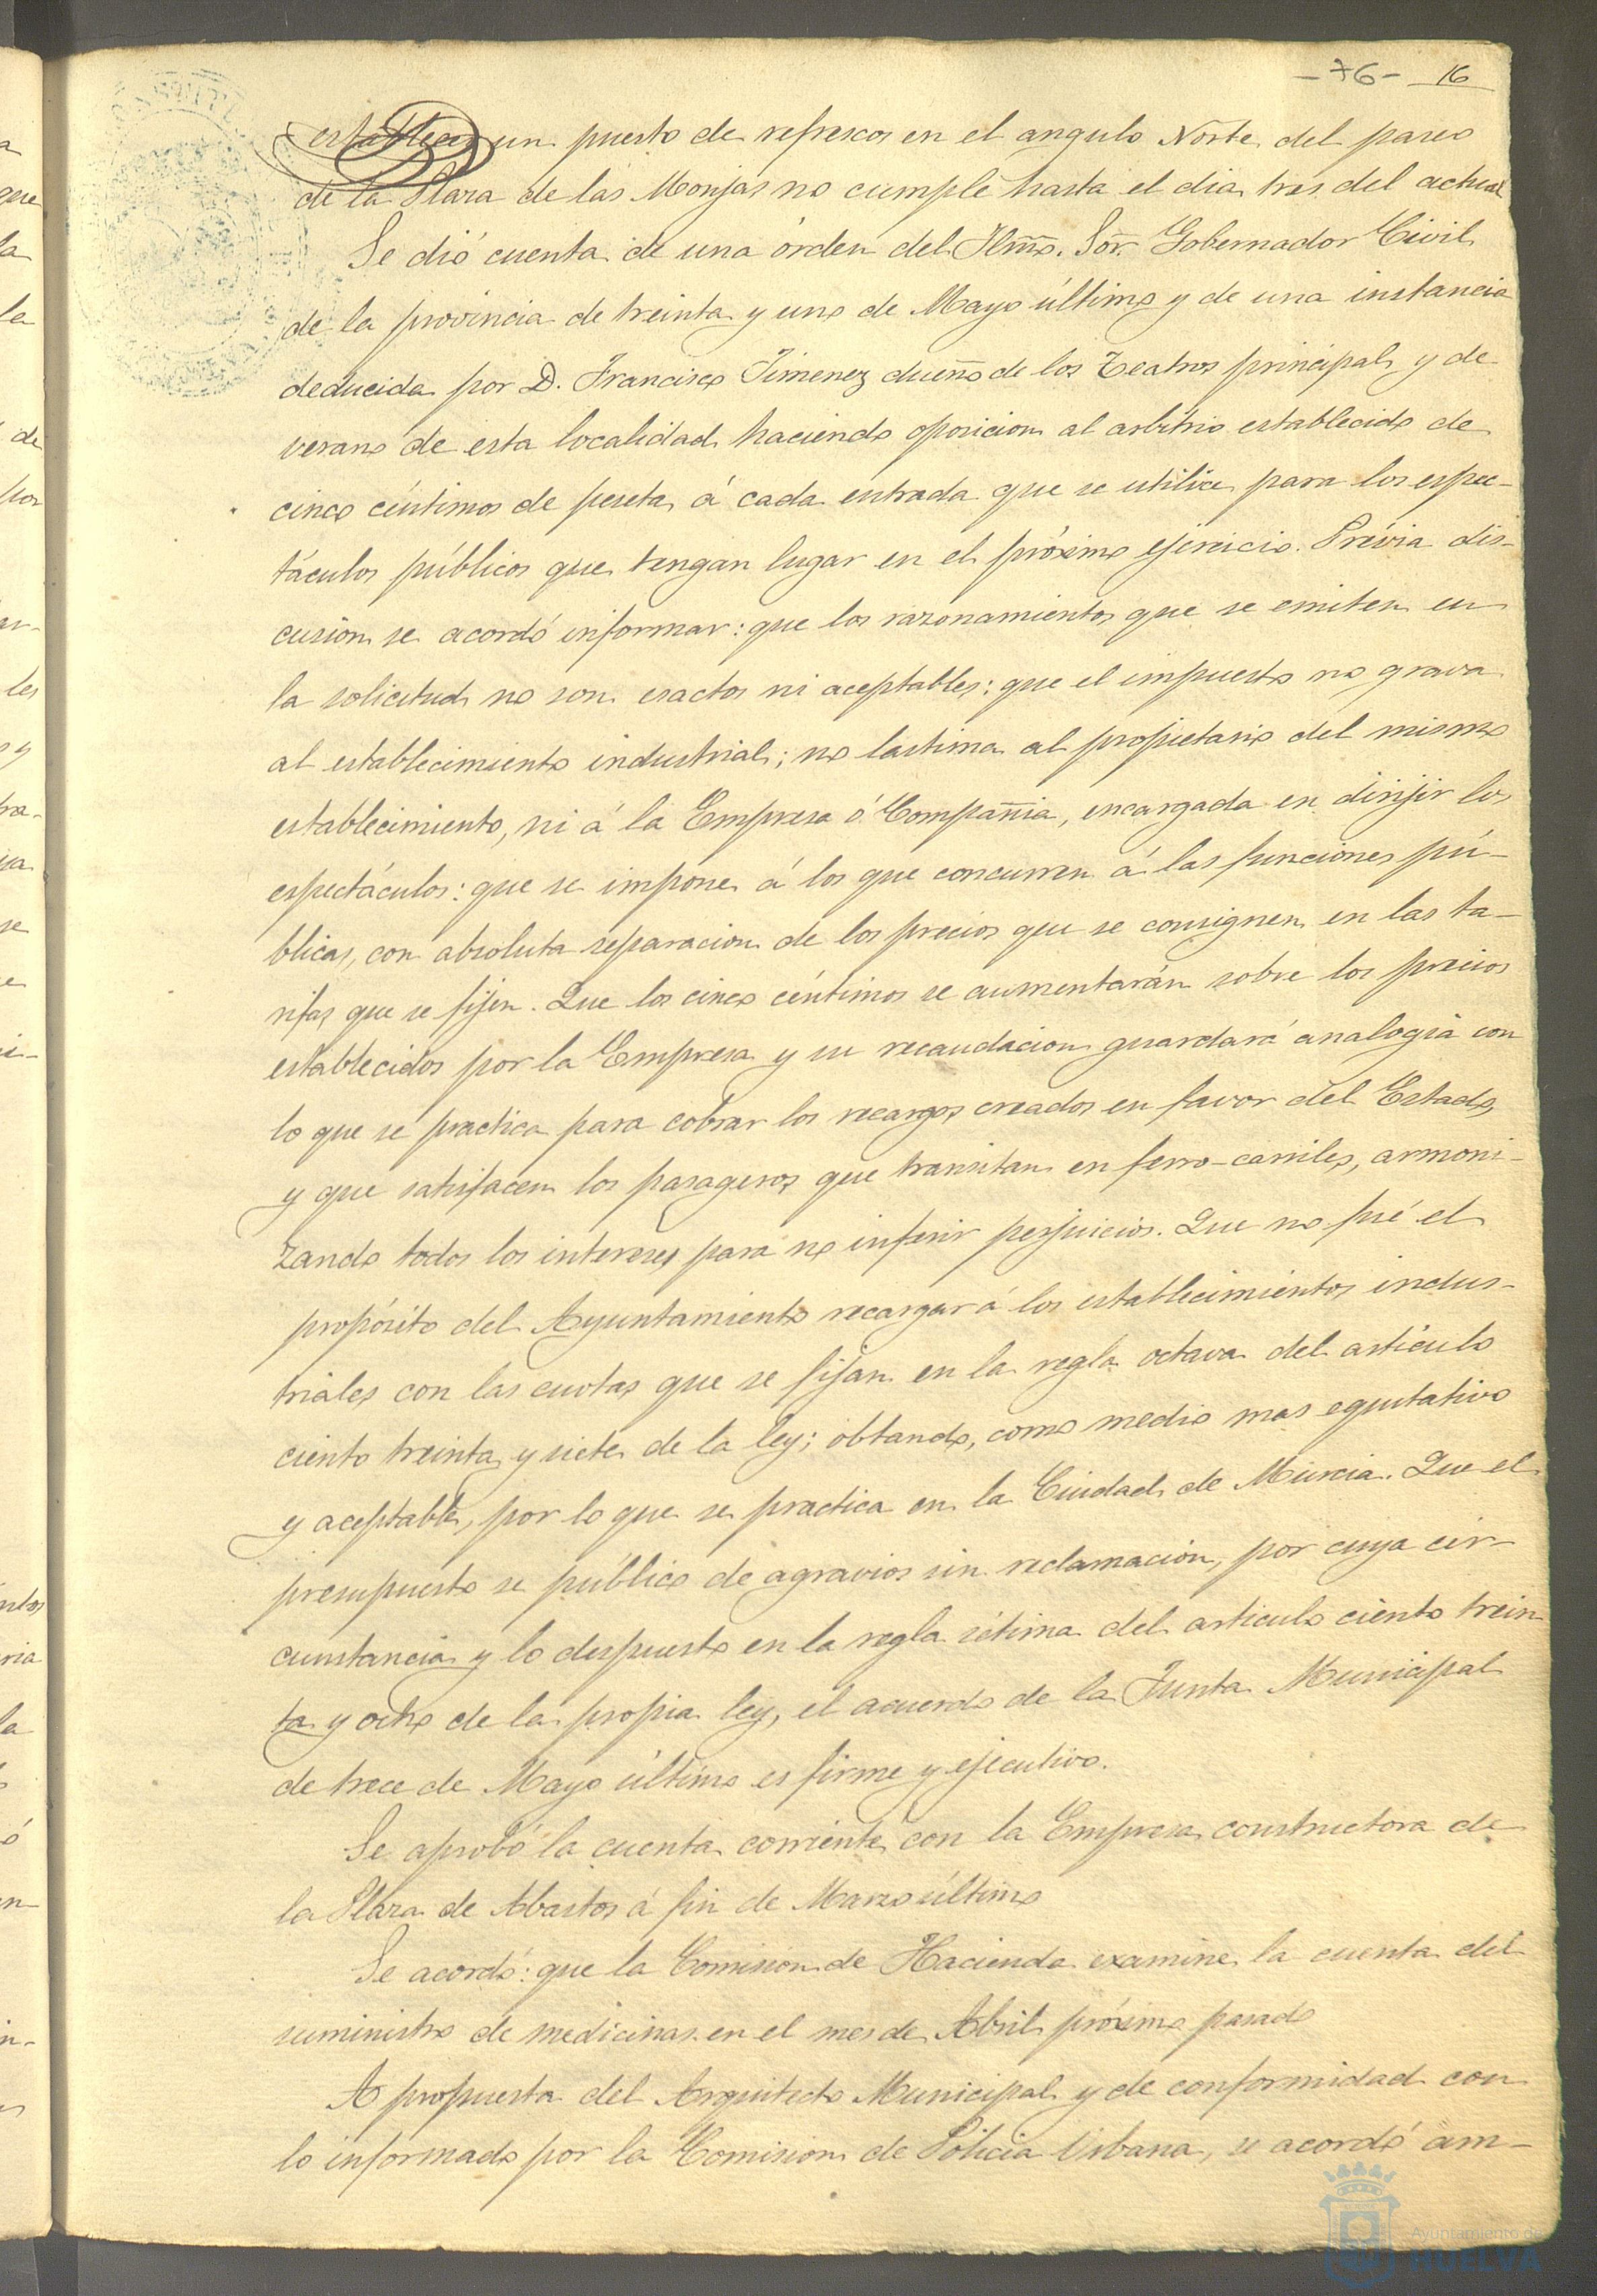 -76- 16
establecer un puesto de refrescos en el angulo Norte del paseo
de la Plaza de las Monjas no cumple hasta el dia tres del actual
Se dió cuenta de una órden del Iltmo. Sor. Gobernador Civil
de la provincia de treinta y uno de Mayo último y de una instancia
deducida por D. Francisco Jimenez dueño de los Teatros principal y de
verano de esta localidad haciendo oposicion al arbitrio establecido de
cinco céntimos de peseta á cada entrada que se utilice para los espec-
táculos públicos que tengan lugar en el próximo ejercicio. Prévia dis-
cusion se acordó informar: que los razonamientos que se emiten en
la solicitud no son esactos ni aceptables; que el impuesto no grava
al establecimiento industrial; no lastima al propietario del mismo
establecimiento, ni á la Empresa ó Compañia, encargada en dirijir los
espectáculos: que se impone á los que concurren á las funciones pú-
blicas, con absoluta separacion de los precios que se consignen en las ta-
rifas que se fijen. Que los cinco céntimos se aumentarán sobre los precios
establecidos por la Empresa y su recaudacion guardará analogia con
lo que se practica para cobrar los recargos creados en favor del Estado,
y que satisfacen los pasageros que transitan en ferro-carriles, armoni-
zando todos los intereses para no inferir perjuicios. Que no fué el
propósito del Ayuntamiento recargar á los establecimientos indus-
triales con las cuotas que se fijan en la regla octava del artículo
ciento treinta y siete de la ley; obtando, como medio mas equitativo
y aceptable, por lo que se practica en la Ciudad de Murcia. Que el
presupuesto se público de agravios sin reclamacion, por cuya cir-
cunstancia y lo dispuesto en la regla sétima del articulo ciento trein-
ta y ocho de la propia ley, el acuerdo de la Junta Municipal
de trece de Mayo último es firme y ejecutivo.
Se aprobó la cuenta corriente con la Empresa constructora de
la Plaza de Abastos á fin de Marzo último
Se acordó: que la Comision de Hacienda examine la cuenta del
suministro de medicinas en el mes de Abril próximo pasado
A propuesta del Arquitecto Municipal y de conformidad con
lo informado por la Comision de Policia Urbana, se acordó am-
Ayuntamiento de
HUELVA